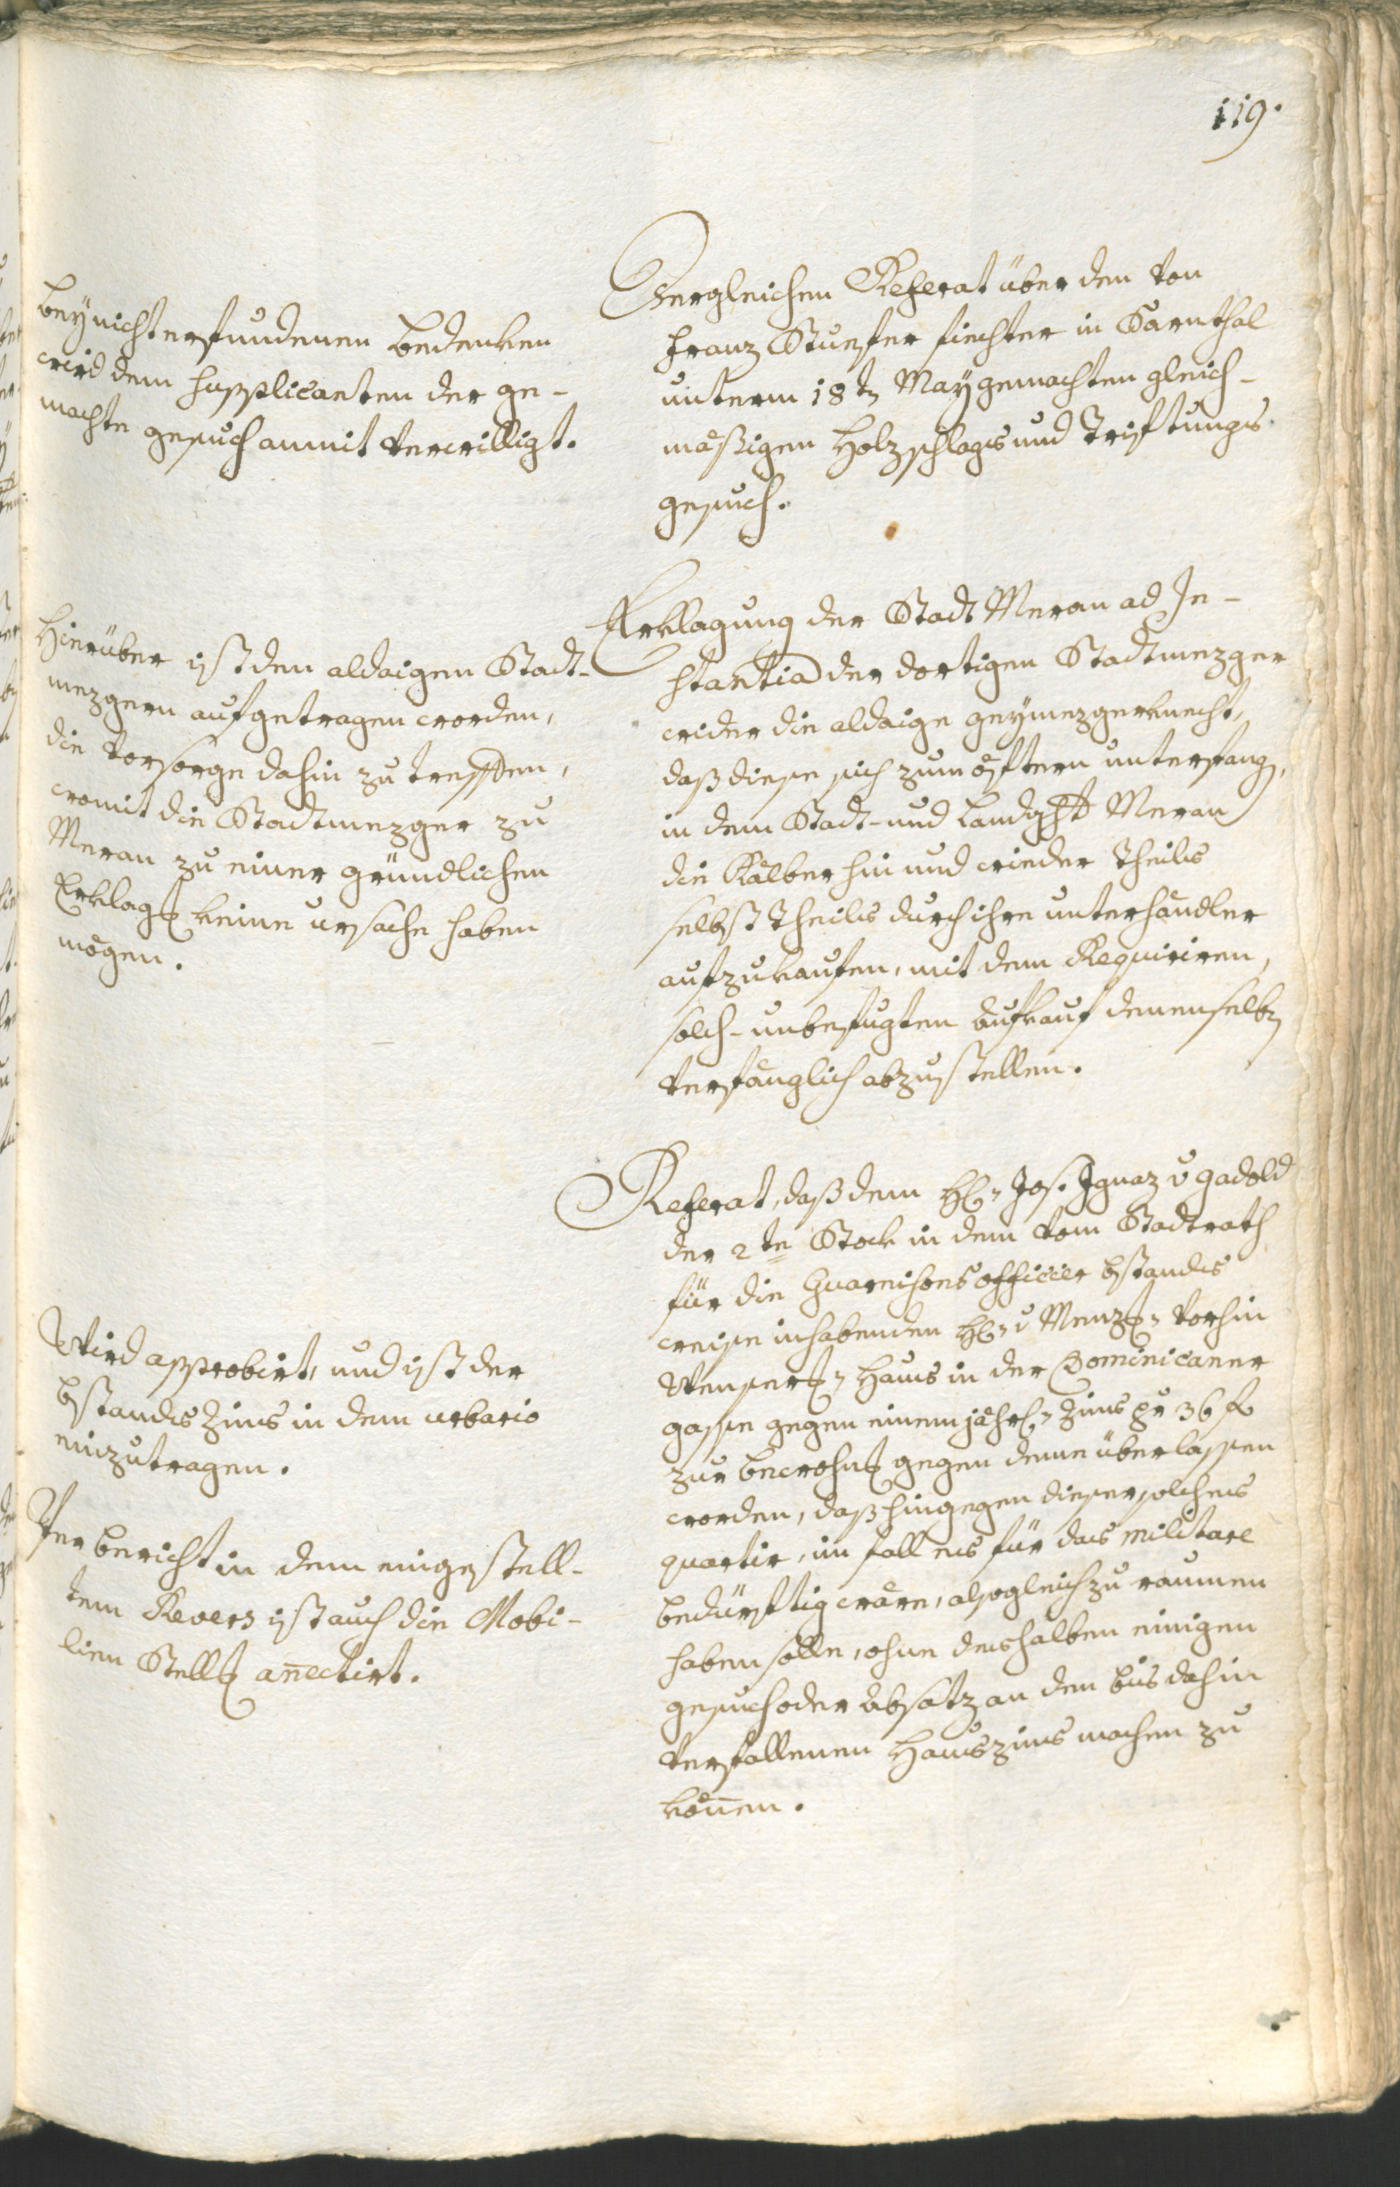 119.
Bey nicht erfundenen bedenken
wird dem supplicanten der ge-
machte gesuch anmit verwilligt.
Dergleichen Referat über den von
Franz Stuefer fiechter in Sarnthal
unterm 18t. May gemachten gleich-
mäßigen Holzschlags und Triftungs
gesuch.
Hierüber ist den aldaigen Stadt-
mezgern aufgetragen worden,
die vorsorge dahin zu treffen,
womit die Stadtmezger zu
Meran zu einer gründlichen
Erklag keine ursache haben
mögen.
Erklagung der Stadt Meran ad In-
stantia der dortigen Stadtmezger
wider die aldaige geymezgerknecht,
daß diese sich zum öftern unterfang,
in dem Stadt- und Landght Meran
die Kälber hin und wieder theils
selbst theils durch ihre unterhändler
aufzukaufen, mit dem Requiriren,
solch-unbefugten aufkauf denenselb
verfänglich abzustellen.
Wird approbirt, und ist der
bstands Zins in dem urbario
einzutragen.
Per bericht in dem eingestell-
tem Revers ist auch die Mobi-
lien Stell annectirt.
Referat, daß dem H: Jos. Ignaz v
der 2te Stock in dem vom Stadtrath
für die Guarnisons officier bstands
weise inhabenden H: v Menz vorhin
Haus in der Dominicaner
gasse gegen einem jährl: Zins pr 36 f
zur bewohn gegen deme überlassen
worden, daß hingegen dieser solches
quartir, im fall es für das militare
bedürftig wäre, alsogleich zu raumen
haben solle, ohne deshalben einigen
gesuch oder absatz an dem bis dahin
verfallenen Hauszins machen zu
können.